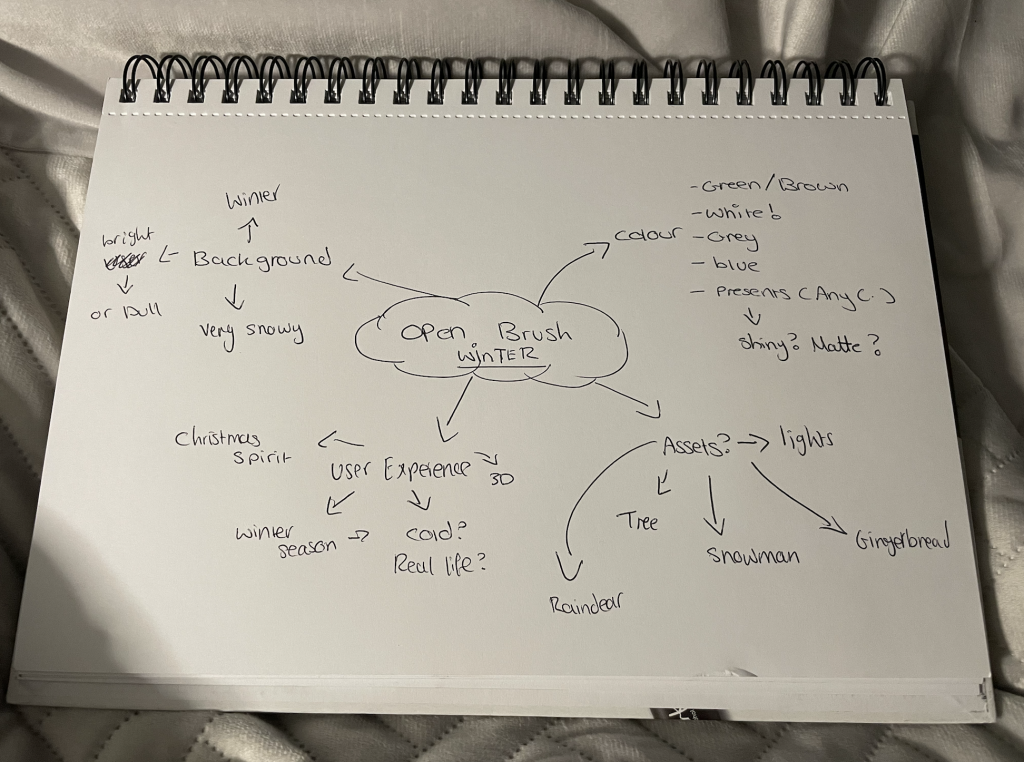 Open Brush
WINTER
Background
Winter
bright
or Dull
very snowy
colour
- Green/Brown
- White!
- Grey
- blue
- Presents (Any C.)
Shiny? Matte?
User Experence
Christmas
spirit
3D
winter
season
cold?
Real life?
Assets?
lights
Tree
Snowman
Gingerbread
Raindear